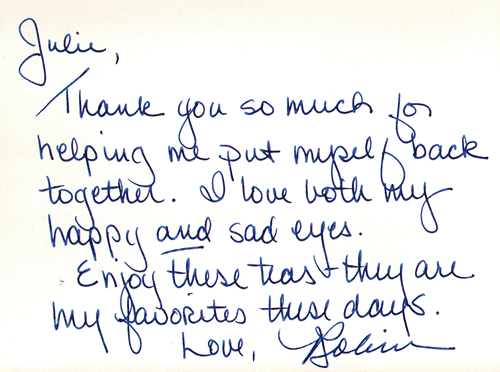 Julie,
Thank you so much for
helping me put myself back
together. I love both my
happy and sad eyes.
Enjoy these teas + they are
my favorites these days.
Love, Robin